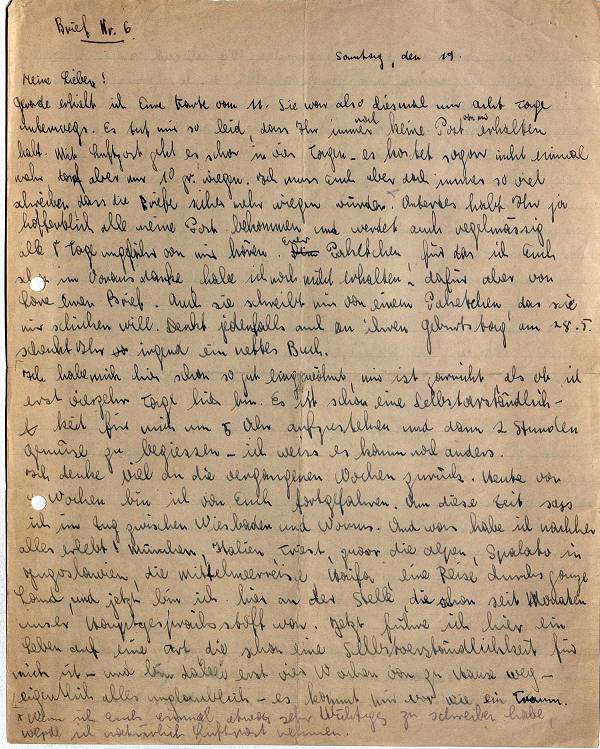 Brief Nr. 6.
Sonntag, den 19.
Meine Lieben!
Gerade erhielt ich Eure Karte vom 11. Sie war also diesmal nur acht Tage
unterwegs. Es tut mir so leid, dass Ihr immer noch keine Post von mir erhalten
habt. Mit Luftpost geht es schon in vier Tagen – es kostet sogar nicht einmal
mehr, darf aber nur 10 gr. wiegen. Ich muss Euch aber doch immer so viel
schreiben dass die Briefe sicher mehr wiegen würden. Unterdes habt Ihr ja
hoffentlich alle meine Post bekommen und werdet auch regelmässig
alle 8 Tage ungefähr von mir hören. Euer Paketchen, für das ich Euch
schon im Voraus danke, habe ich noch nicht erhalten – dafür aber von
Lore einen Brief. Auch sie schreibt mir von einem Paketchen, das sie
mir schicken will. Denkt jedenfalls auch an ihren Geburtstag am 28.5.
schenkt Ihr irgend ein nettes Buch.
Ich habe mich hier schon so gut eingewöhnt, mir ist garnicht, als ob ich
erst vierzehn Tage hier bin. Es ist schon eine Selbstverständlich-
keit für mich um 5 Uhr aufzustehen und dann 2 Stunden
Gemüse zu begiessen – ich weiss es kaum noch anders.
Ich denke viel an die vergangenen Wochen zurück. Heute vor
Wochen bin ich von Euch fortgefahren. Um diese Zeit sass
ich im Zug zwischen Wiesbaden und Worms. Und was habe ich nachher
alles erlebt! München, Italien, Triest, zuvor die Alpen, Spalato in
Jugoslawien, die Mittelmeerreise, Haifa, eine Reise durchs ganze
Land und jetzt bin ich hier an der Stelle, die schon seit Monaten
unser Hauptgesprächsstoff war. Jetzt führe ich hier ein
Leben auf eine Art die schon eine Selbstverständlichkeit für
mich ist – und bin dabei erst vier Wochen von zu Hause weg –
eigentlich alles unglaublich – es kommt mir vor wie ein Traum.
* Wenn ich Euch einmal etwas sehr Wichtiges zu schreiben habe,
werde ich natürlich Luftpost nehmen.